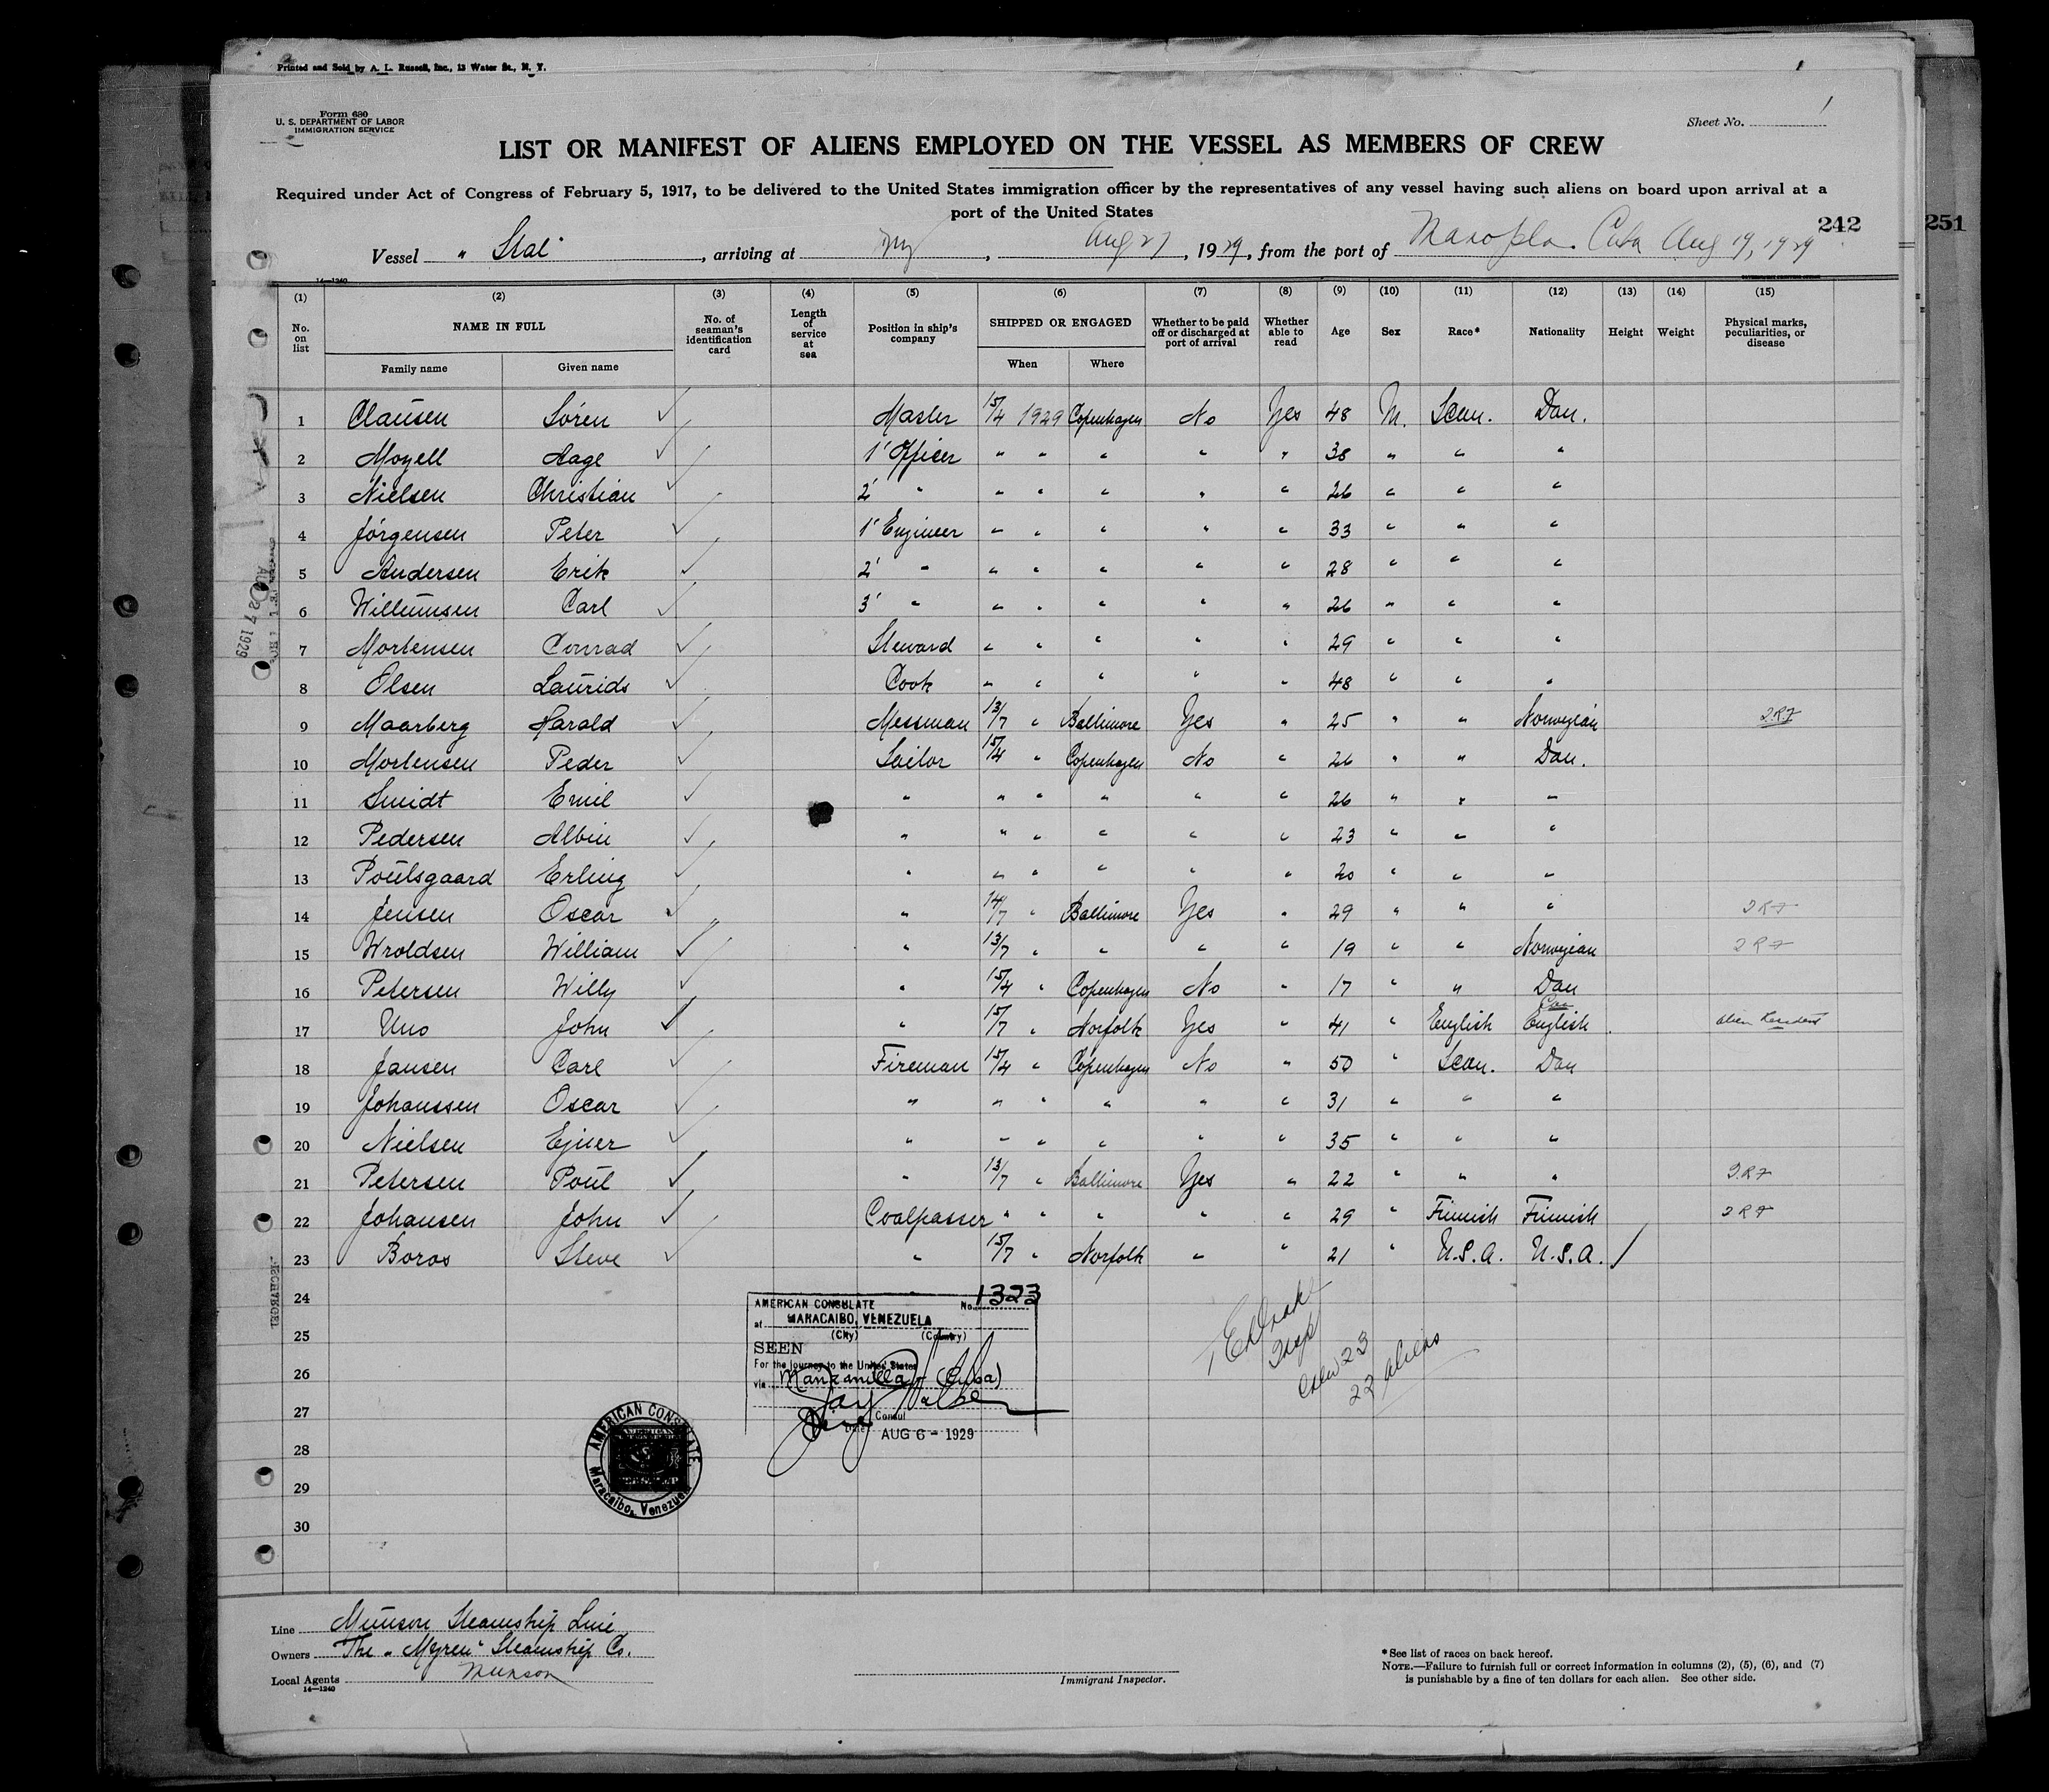 Printed and Sold by A. L. Russell, Inc., 13 Water St., N. Y.
Form 680
U. S. DEPARTMENT OF LABOR
IMMIGRATION SERVICE
Sheet No. 1
LIST OR MANIFEST OF ALIENS EMPLOYED ON THE VESSEL AS MEMBERS OF CREW
Required under Act of Congress of February 5, 1917, to be delivered to the United States immigration officer by the representatives of any vessel having such aliens on board upon arrival at a
port of the United States
242 251
Vessel "Stal", arriving at NY, Aug 27, 1929, from the port of Cuba Aug 19, 1929
14—1240
(1) (2) (3) (4) (5) (6) (7) (8) (9) (10) (11) (12) (13) (14) (15)
No. on list NAME IN FULL No. of seaman's identification card Length of service at sea Position in ship's company SHIPPED OR ENGAGED Whether to be paid off or discharged at port of arrival Whether able to read Age Sex Race* Nationality Height Weight Physical marks, peculiarities, or disease
Family name Given name When Where
1 Clausen Sören Master 15/4 1929 Copenhagen No Yes 48 M. Scan. Dan.
2 Moyell Aage 1' Officer " " " " " 38 " " "
3 Nielsen Christian 2' " " " " " " 26 " " "
4 Jörgensen Peter 1' Engineer " " " " " 33 " " "
5 Andersen Erik 2' " " " " " " 28 " " "
6 Willumsen Carl 3' " " " " " " 26 " " "
7 Mortensen Conrad Steward " " " " " 29 " " "
8 Olsen Laurids Cook " " " " " 48 " " "
9 Maarberg Harald Messman 13/7 " Baltimore Yes " 25 " " Norwegian
10 Mortensen Peder Sailor 15/4 " Copenhagen No " 26 " " Dan.
11 Smidt Emil " " " " " " 26 " " "
12 Pedersen Albin " " " " " " 23 " " "
13 Poulsgaard Erling " " " " " " 20 " " "
14 Jensen Oscar " 14/7 " Baltimore Yes " 29 " " "
15 Wroldsen William " 13/7 " " " " 19 " " Norwegian
16 Petersen Willy " 15/4 " Copenhagen No " 17 " " Dan
17 Uno John " 15/7 " Norfolk Yes " 41 " English English alien Resident
18 Jansen Carl Fireman 15/4 " Copenhagen No " 50 " Scan. Dan
19 Johanssen Oscar " " " " " " 31 " " "
20 Nielsen Ejner " " " " " " 35 " " "
21 Petersen Poul " 13/7 " Baltimore Yes " 22 " " "
22 Johansen John Coalpasser " " " " " 29 " Finnish Finnish
23 Boros Steve " 15/7 " Norfolk " " 21 " U.S.A. U.S.A.
24
25
26
27
28
29
30
AUG 27 1929
AMERICAN CONSULATE No. 1323
at MARACAIBO, VENEZUELA
(City) (Country)
SEEN
For the journey to the United States
via Manzanilla (Cuba)
Consul
Date AUG 6 - 1929
AMERICAN CONSULATE
Maracaibo, Venezuela
Insp
Crew 23
22 aliens
Line Munson Steamship Line
Owners The "Myren" Steamship Co.
Local Agents Munson
14—1240
Immigrant Inspector.
*See list of races on back hereof.
NOTE.—Failure to furnish full or correct information in columns (2), (5), (6), and (7)
is punishable by a fine of ten dollars for each alien. See other side.